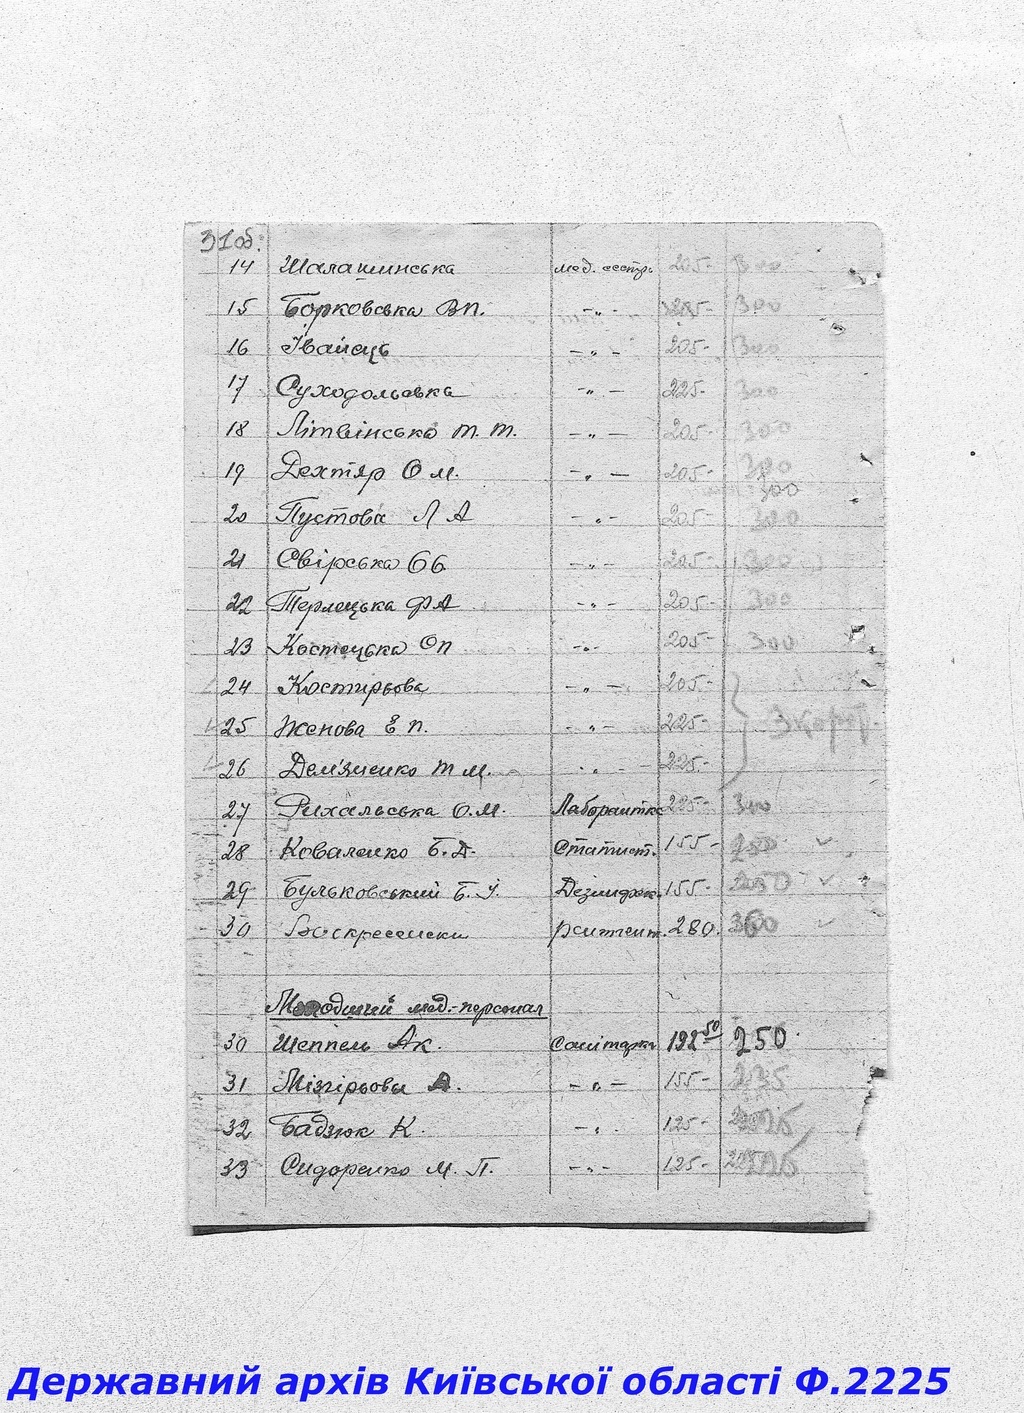 31 об.
14 Шалашинська мед. сестр. 205- 300
15 Борковська В П. -"- 300
16 Івайець -"- 205- 300
17 Суходольська -"- 225- 300
18 Літвінська Т. Т. -"- 205- 300
19 Дехтяр О м. -"- 205- 300
300
20 Пустова Л А -"- 205- 300
21 Свірська -"- 205- 300
22 Терлецька Ф А -"- 205- 300
23 Костецька О п -"- 205- 300
24 Костирьова -"- 205-
25 Женова Е п. -"- 225- Зкорот.
26 Дем'яненко Т м. -"- 225-
27 Рихальська О. М. Лаборантка 225- 300
28 Коваленко Б. Д. Статист. 155- 250
29 Бульковський Б. І. Дезинфек. 155- 250
30 Воскресенски 280. 300
Молодший мед.-персонал
30 Шеппель Ак. Санітарка 192 50 250
31 Мізгірьова А. -"- 155- 235
32 Бадзюк К. -"- 125-
33 Сидоренко М. П. -"- 125-
Державний архів Київської області Ф.2225